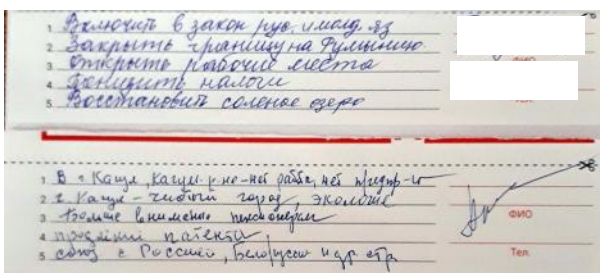 1 Включить в закон рус. и молд. яз
2 Закрыть границу на Румынию
3 Открыть рабочие места
4 Понизить налоги
5 Восстановить соленое озеро
1 В г. Кагул, Кагул. р-не-нет работы, нет предпр-й
2 г. Кагул - чистый город, экология
3 Больше внимания пенсионерам
4 патенты
5 союз с Россией, Белоруссии и др стр
ФИО
Тел.